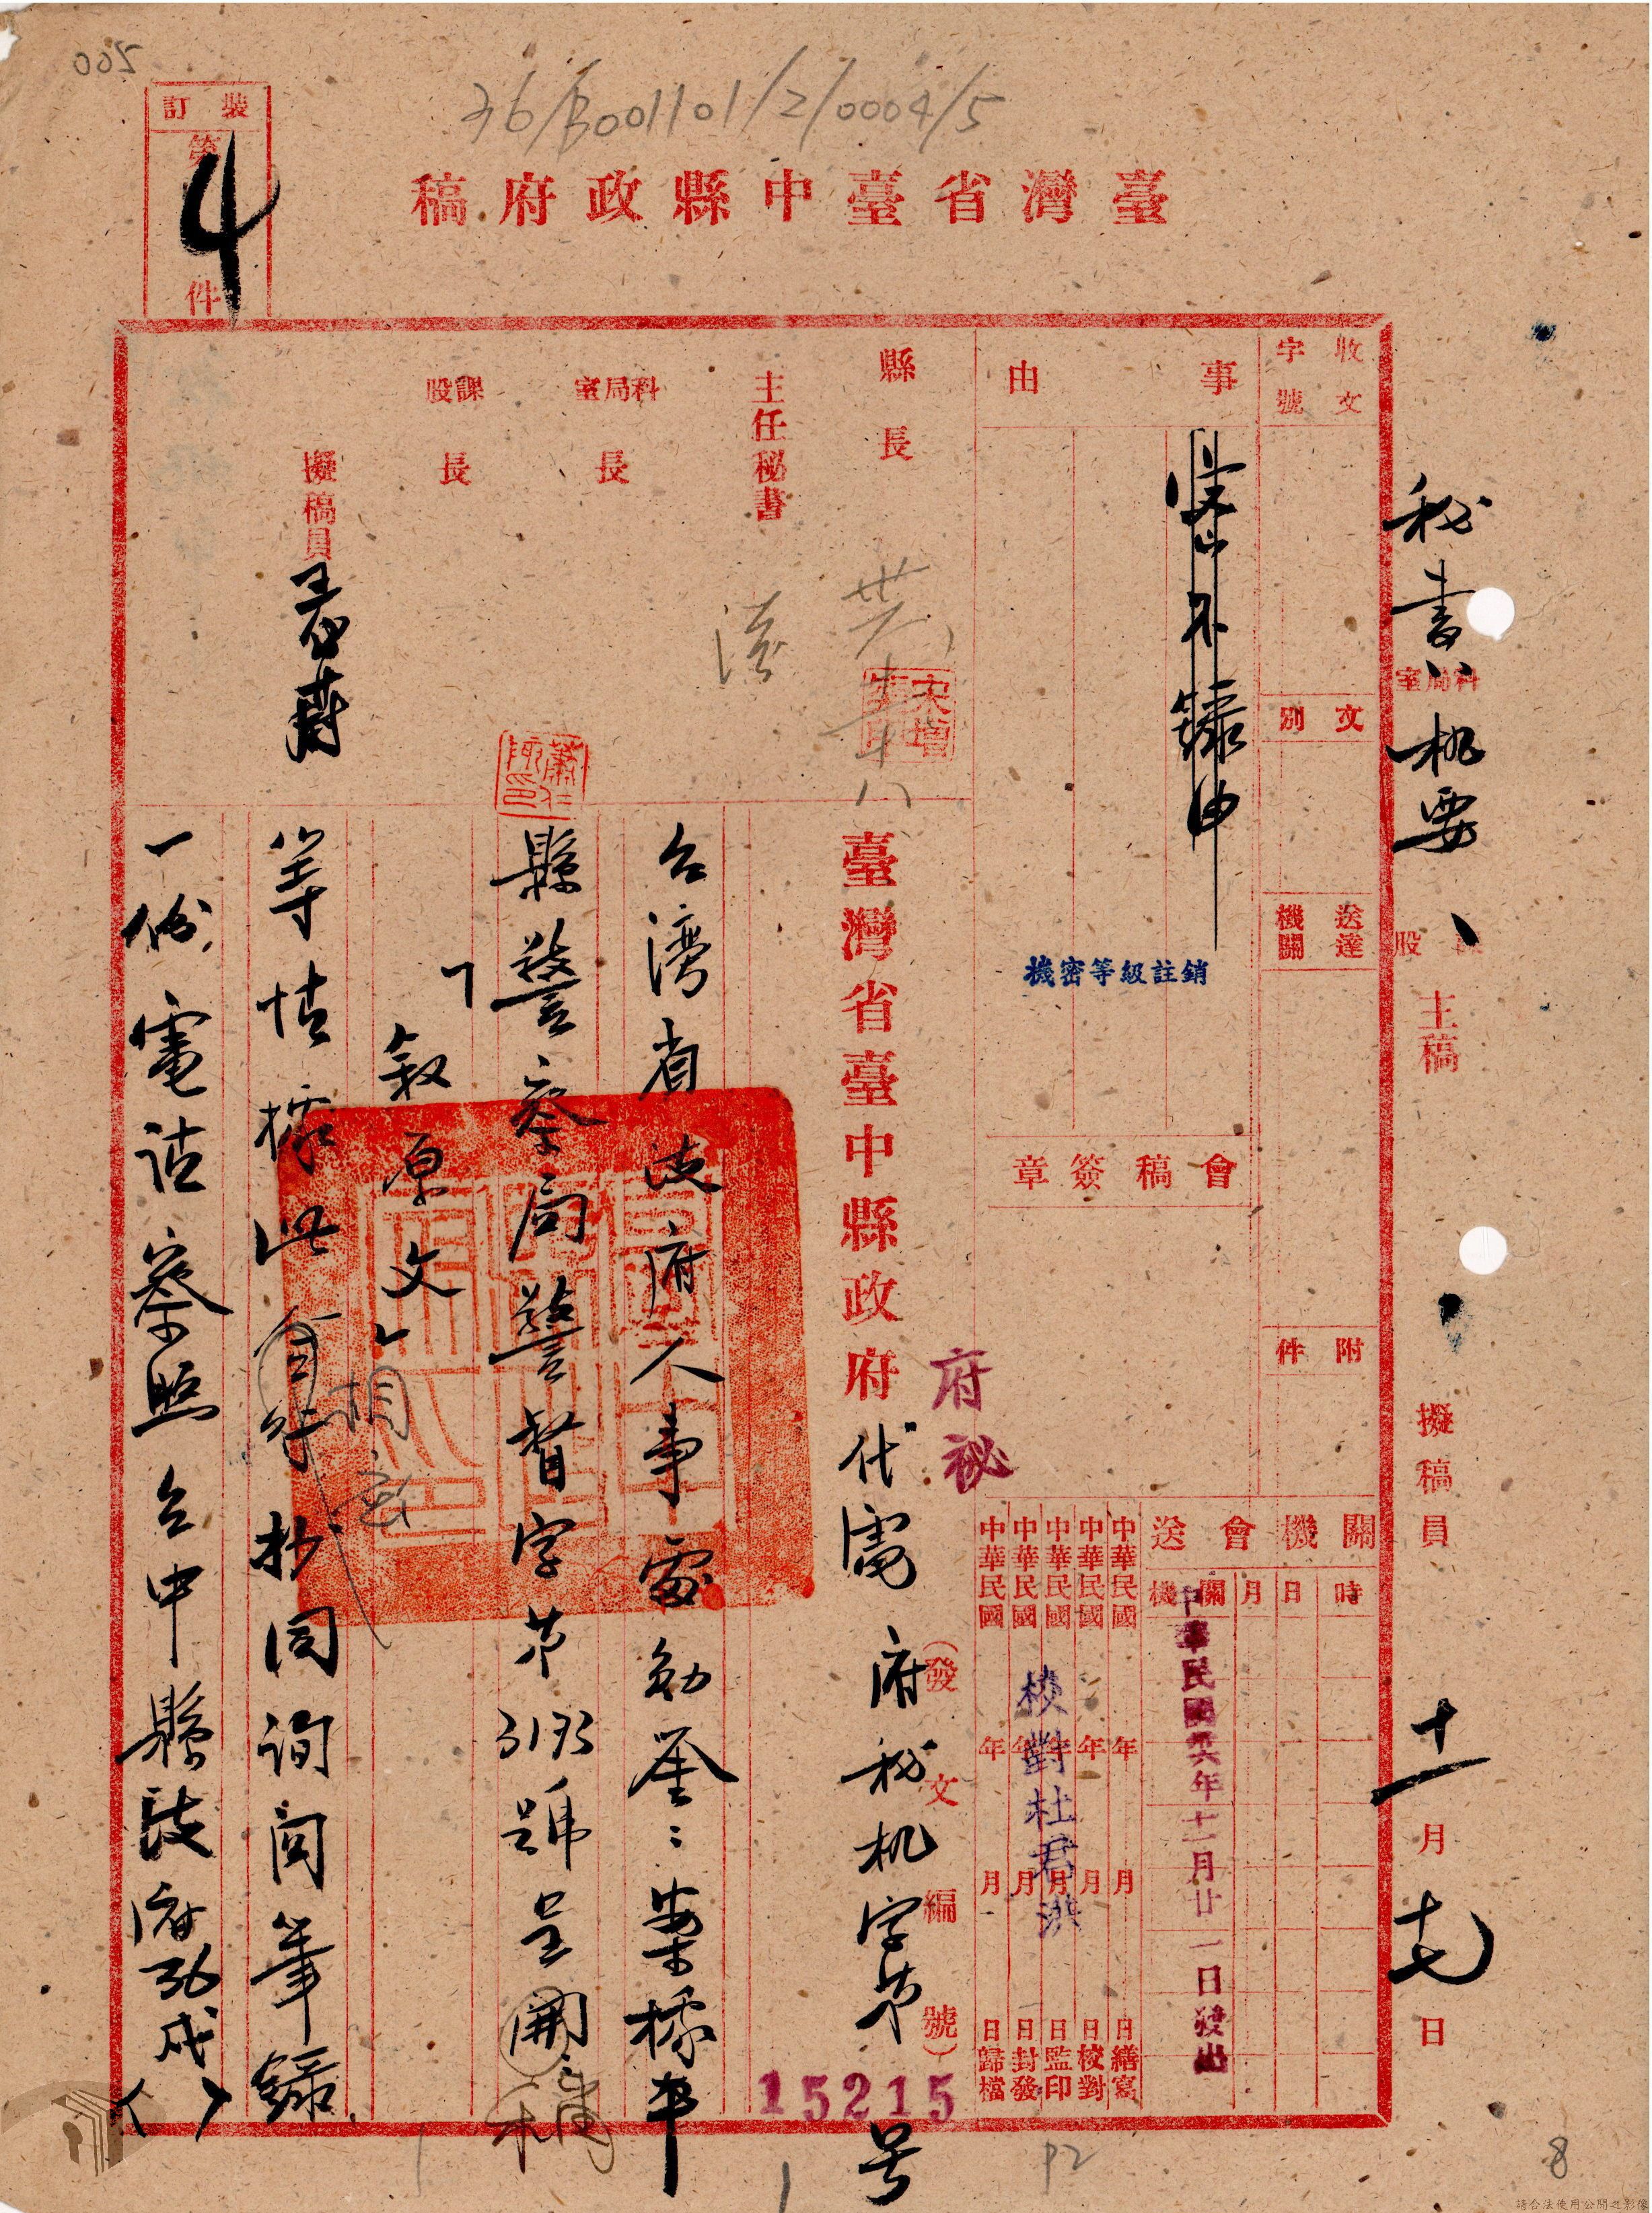 36/B001101/2/0004/5
裝訂
第
4
件
臺灣省臺中縣政府稿
秘書
科局室
機要
股
主稿
擬稿員
十一月十七日
收文
字號
文別
送達機關
附件
事由
機密等級註銷
會稿簽章
關機會送
機關
月
日
時
中華民國卅六年十一月廿一日發出
中華民國 年 月 日繕寫
中華民國 年 月 日校對
中華民國 年 月 日監印
中華民國 年 月 日封發
中華民國 年 月 日歸檔
校對杜君洪
縣長
主任秘書
科局室長
課股長
擬稿員
府祕
(發文編號)
15215
臺灣省臺中縣政府代電 府秘机字第 号
台湾省政府人事處勛鑒:案據本
縣警察局警督字第 號呈開:稱
「敘原文」
等情據此 相應 抄同詢問筆錄
一份,電請察照台中縣政府
P2
8
請合法使用公開之影像